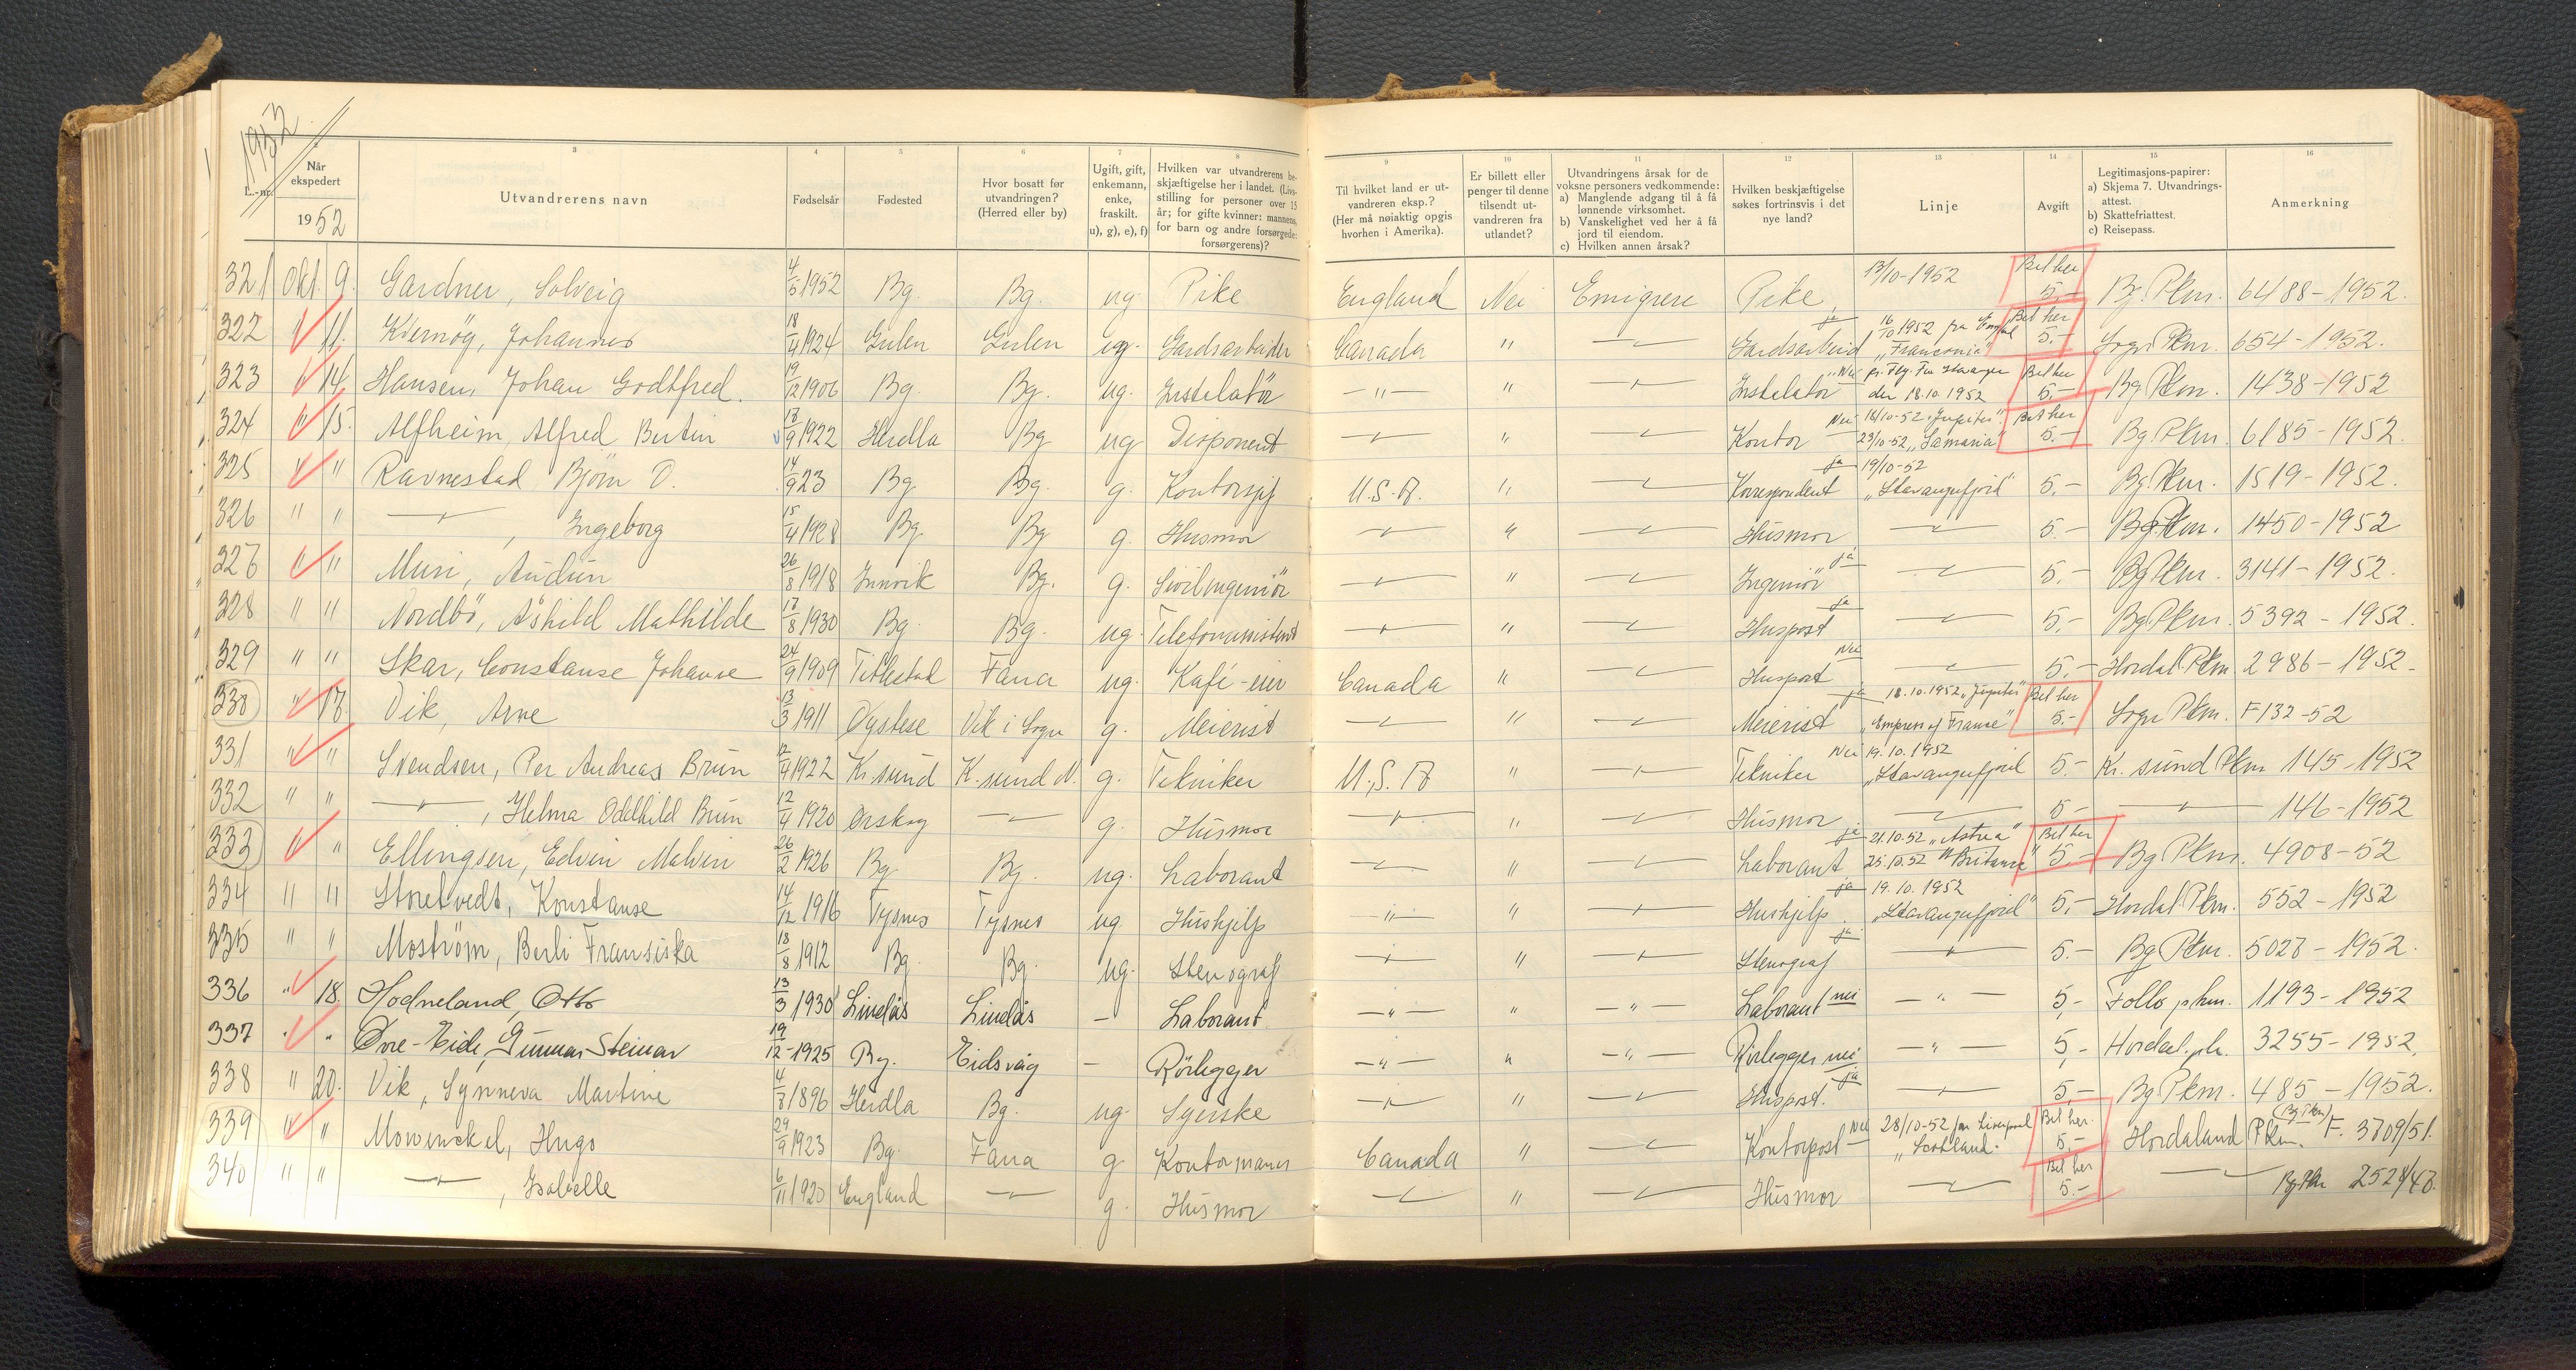 1952
L.-nr.
Når ekspedert
1952
3
Utvandrerens navn
4
Fødselsår
5
Fødested
6
Hvor bosatt før utvandringen? (Herred eller by)
7
Ugift, gift, enkemann, enke, fraskilt. u), g), e), f)
8
Hvilken var utvandrerens beskjæftigelse her i landet. (Livsstilling for personer over 15 år; for gifte kvinner: mannens, for barn og andre forsørgede: forsørgerens)?
9
Til hvilket land er utvandreren eksp.? (Her må nøiaktig opgis hvorhen i Amerika).
10
Er billett eller penger til denne tilsendt utvandreren fra utlandet?
11
Utvandringens årsak for de voksne personers vedkommende:
a) Manglende adgang til å få lønnende virksomhet.
b) Vanskelighet ved her å få jord til eiendom.
c) Hvilken annen årsak?
12
Hvilken beskjæftigelse søkes fortrinsvis i det nye land?
13
Linje
14
Avgift
15
Legitimasjons-papirer:
a) Skjema 7. Utvandringsattest.
b) Skattefriattest.
c) Reisepass.
16
Anmerkning
321 Okt. 9. Gardner, Solveig 4/5 1952 Bg. Bg. ug Pike England Nei Emigrere Pike 13/10-1952 Bet her 5.- Bg. Pkm. 6488-1952.
322 " 11. Johannes 18/4 1924 Gulen Gulen ug. Gardsarbeider Canada " " Gardsarbeid ja 16/10 1952 fra "Franconia" Bet her 5.- Sogn Pkm. 654-1952.
323 " 14. Hansen, Johan Godtfred. 19/12 1906 Bg. Bg. ug. Instalatör " " " Instalatör Nei pr. Fly. Fra Stavanger den 18.10.1952 Bet her 5.- Bg Pkm. 1438-1952
324 " 15. Alfheim, Alfred Bertin 17/9 1922 Herdla Bg ug Disponent " " " Kontor Nei 18/10-52 "Jupiter" 23/10-52 "Samaria" Bet her 5.- Bg Pkm. 6185-1952.
325 " " Ravnestad Bjørn O. 14/9 23 Bg. Bg. g. Kontorsjef U.S.A. " " Korrespondent ja 19/10-52 "Stavangerfjord" 5.- Bg. Pkm. 1519-1952.
326 " " " , Ingeborg 15/4 1928 Bg Bg g. Husmor " " " Husmor " 5.- Bg Pkm. 1450-1952
327 " " Muri, Audun 26/8 1918 Innvik Bg. g. Sivilingeniör " " " Ingeniör ja " 5.- Bg Pkm. 3141-1952.
328 " " Nordbö, Åshild Mathilde 17/8 1930 Bg Bg. ug. Telefonassistent " " " Huspost ja " 5.- Bg Pkm. 5392-1952.
329 " " Skar, Constanse Johanne 24/9 1909 Fana ug. Kafé-eier Canada " " Huspost Nei " 5.- Hordal Pkm 2986-1952-
330 " 17. Vik, Arne 13/3 1911 Øystese Vik i Sogn g. Meierist " " " Meierist ja 18.10.1952 "Jupiter" "Empress of France" Bet her 5.- Sogn Pkm. F 132-52
331 " " Svendsen, Per Andreas Brun 12/4 1922 Kr.sund K.sund N. g. Tekniker U.S.A " " Tekniker Nei 19.10.1952 "Stavangerfjord 5.- Kr. sund Pkm 145-1952
332 " " " , Helma Oddhild Brun 12/4 1920 Ørskog " g. Husmor " " " Husmor " 5.- " 146-1952
333 " " Ellingsen, Edvin Malvin 26/2 1926 Bg Bg. ug. Laborant " " " Laborant ja 21.10.52 "Astrea" 25.10.52 Bet her 5.- Bg Pkm. 4908-52
334 " " Storetvedt, Konstanse 14/12 1916 Tysnes Tysnes ug Hushjelp " " " Hushjelp. ja 19.10.1952 "Stavangerfjord" 5.- Hordal Pkm. 552-1952
335 " " Moström, Berli Fransiska 18/8 1912 Bg. Bg. ug. Stenograf " " " Stenograf ja " 5.- Bg Pkm. 5027-1952.
336 " 18. Hodneland, Otto 13/3 1930 Lindås Lindås - Laborant " " " Laborant nei " 5,- Follo pkm. 1193-1952
337 " " Øvre-Eide, Gunnar Steinar 19/12-1925 Bg. Eidsvåg - Rörlegger " " " Rörlegger nei " 5,- Hordal. pk. 3255-1952.
338 " 20. Vik, Synneva Martine 4/8 1896 Herdla Bg. ug. Syerske " " " Huspost. ja " 5.- Bg Pkm. 485-1952.
339 " " Mowinckel, Hugo 29/9 1923 Bg. Fana g Kontormann Canada " " Kontorpost Nei 28/10-52 fra Liverpool "Scotland. Bet her. 5.- Hordaland Pkm. (Bg Pkm) F. 3709/51.
340 " " " , Isabelle 6/11 1920 England " g. Husmor " " " Husmor " Bet her 5.- " Bg Pkm